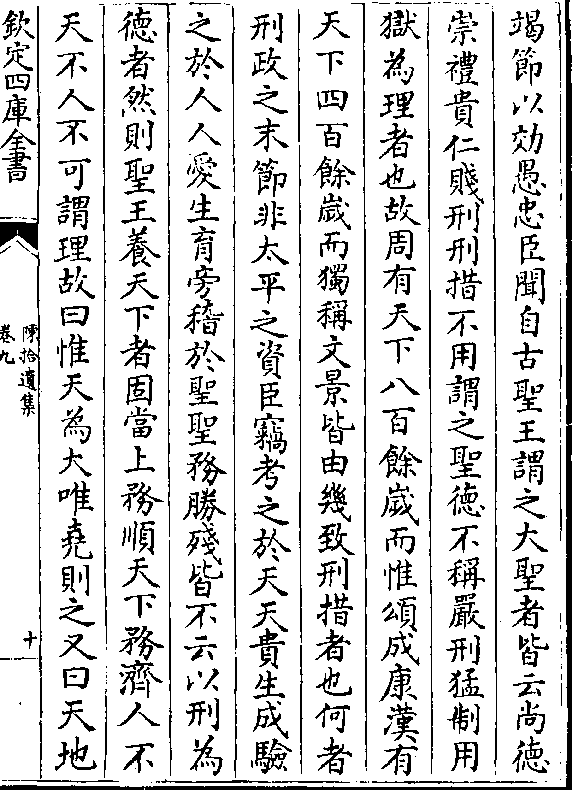 竭節以効愚忠臣聞自古聖王謂之大聖者皆云尚德
崇禮貴仁賤刑刑措不用謂之聖德不稱嚴刑猛制用
獄為理者也故周有天下八百餘嵗而惟頌成康漢有
天下四百餘嵗而獨稱文景皆由幾致刑措者也何者
刑政之末節非太平之資臣竊考之於天天貴生成驗
之於人人愛生育旁稽於聖聖務勝殘皆不云以刑為
德者然則聖王養天下者固當上務順天下務濟人不
天不人不可謂理故曰惟天為大唯堯則之又曰天地
欽定四庫全書
陳拾遺集
卷九
十